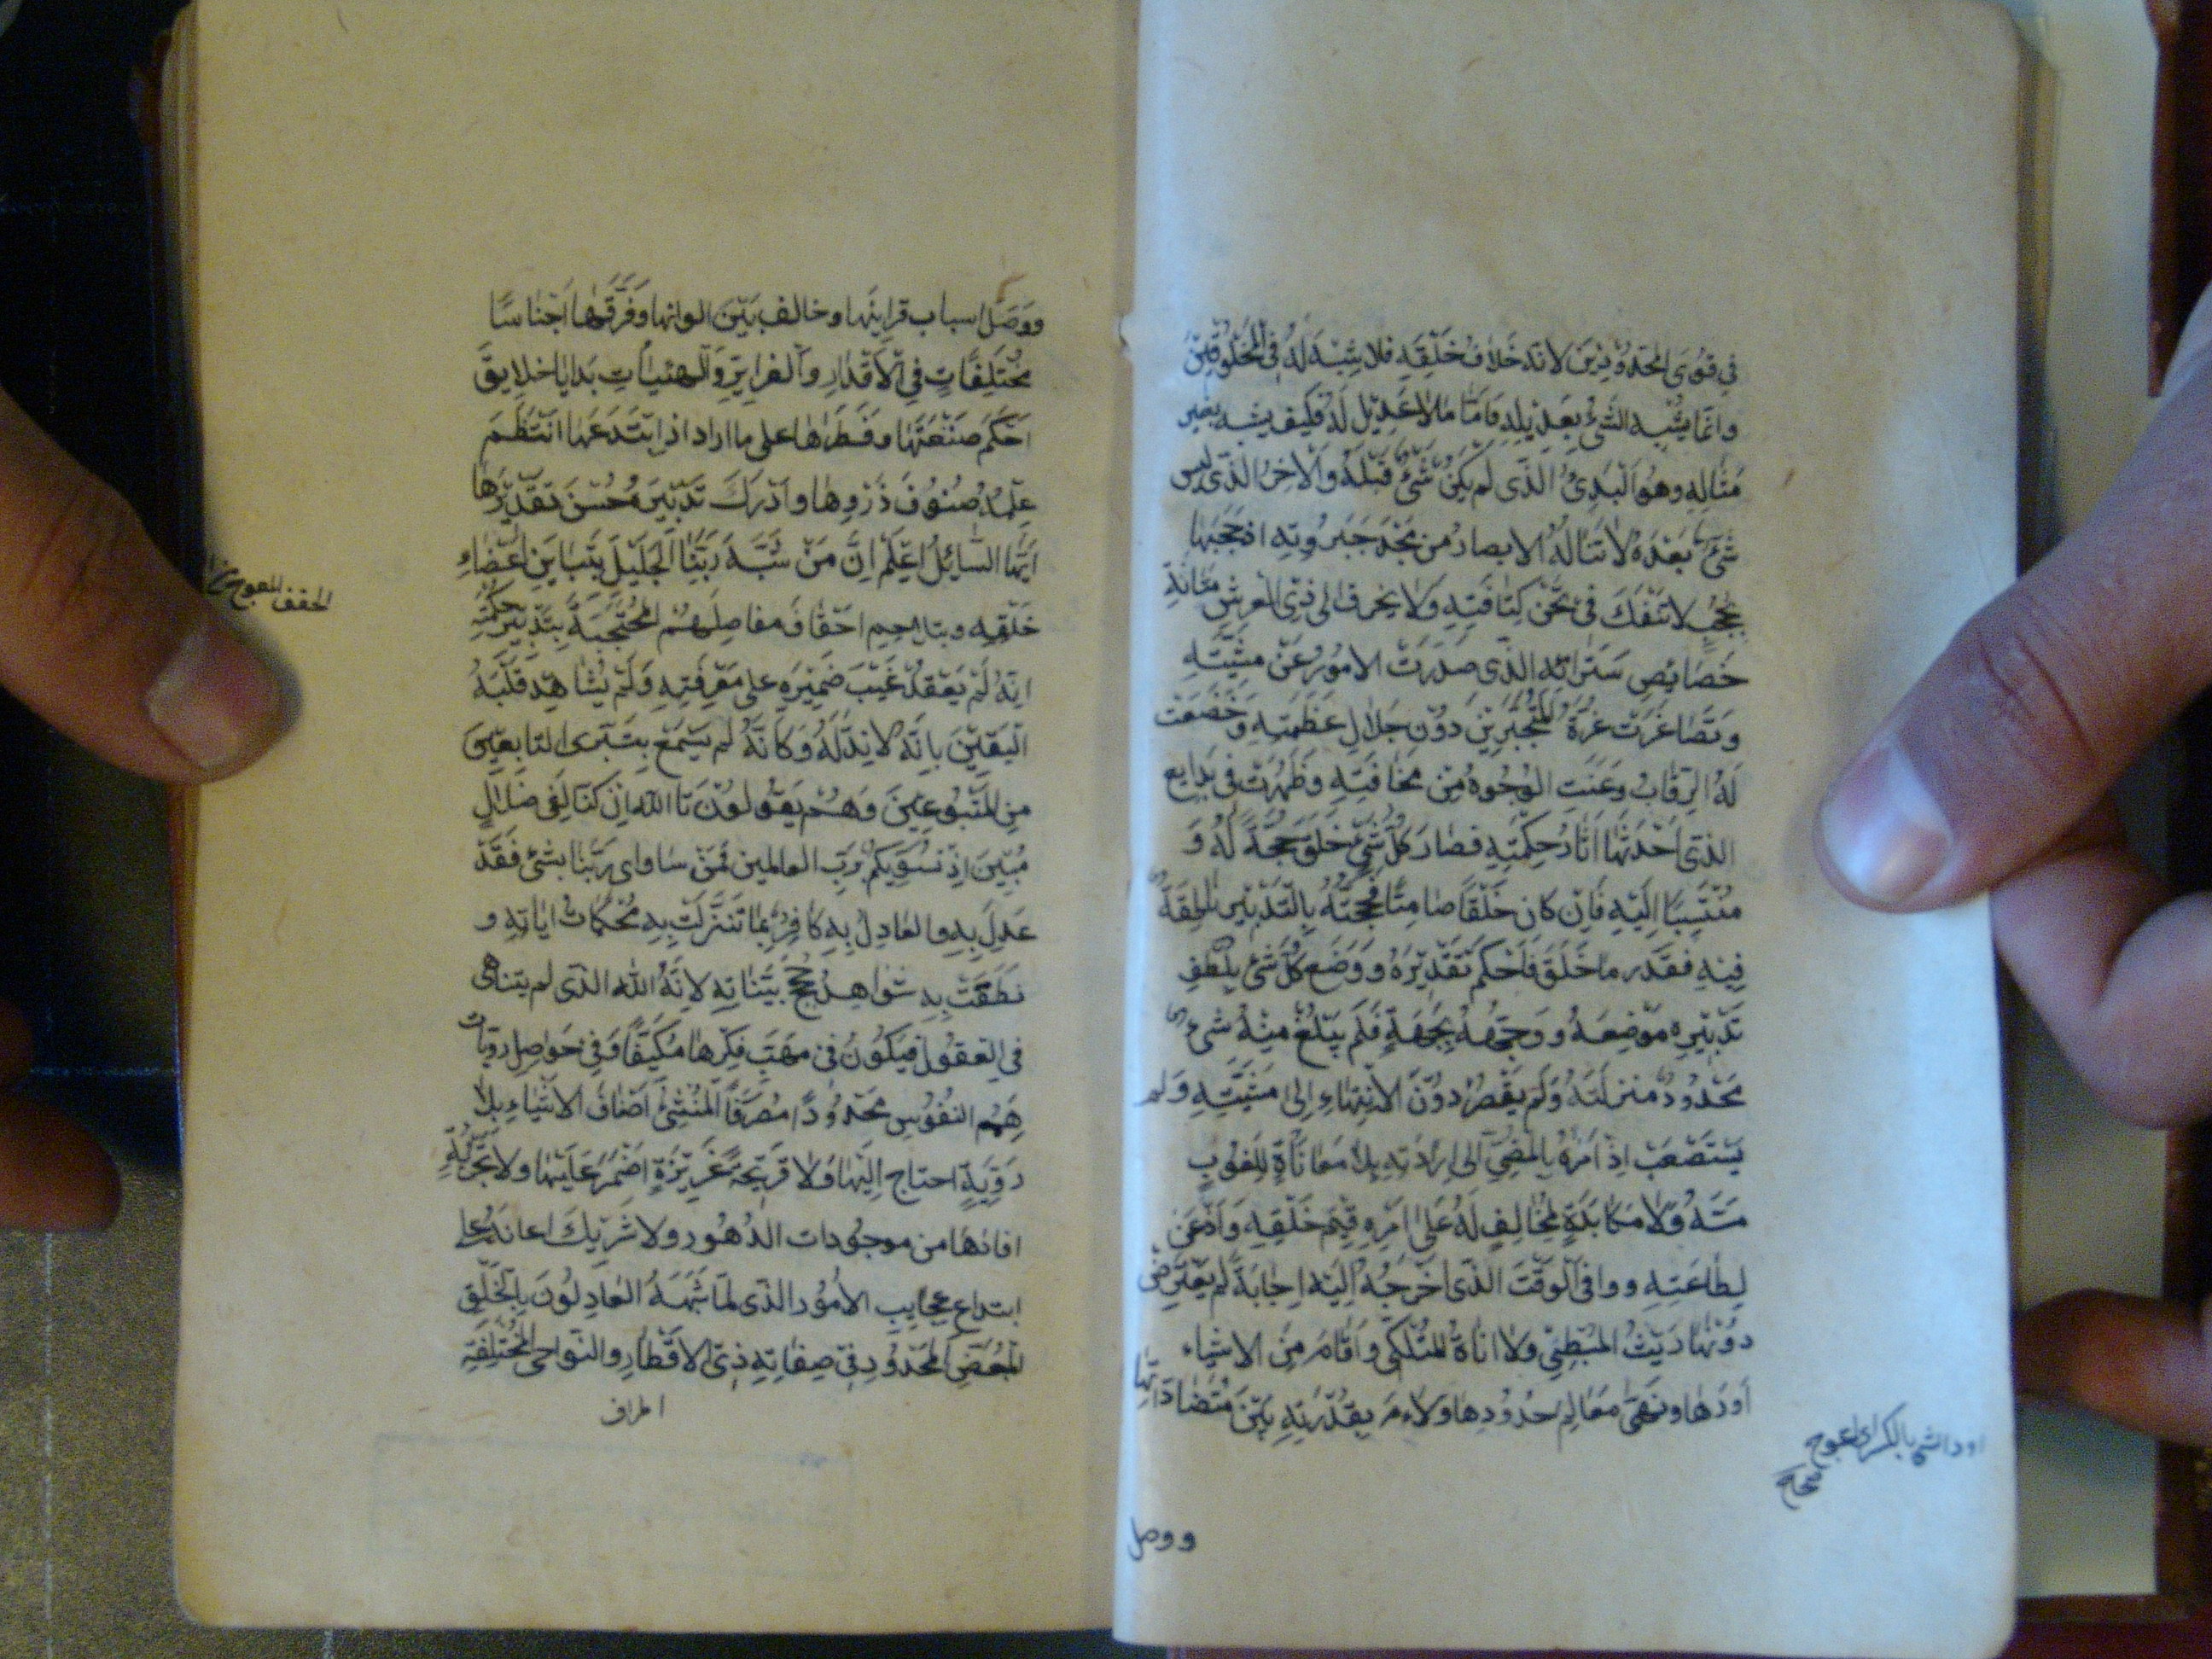 في قوى المحدودين لانه خلاف خلقه فلا شبه له في المخلوقين
وانما يشبه الشئ بعديله فاما ما لا عديل له فكيف يشبه بغير
مثاله وهو البدئ الذى لم يكن شئ قبله والاخر الذى ليس
شئ بعده لا تناله الابصار من مجد جبروته اذ حجبها
بحجب لا تنفك في ثخن كثافته ولا يخرق الى ذى العرش متانة
خصائص ستراته الذى صدرت الامور عن مشيته
وتصاغرت عزة المتجبرين دون جلال عظمته وخضعت
له الرقاب وعنت الوجوه من مخافته وظهرت في بدايع
الذى احدثها اثار حكمته فصار كل شئ خلق حجة له و
منتسبا اليه فان كان خلقا صامتا فحجته بالتدبير ناطقة
فيه فقدر ما خلق فاحكم تقديره ووضع كل شئ بلطف
تدبيره موضعه ووجهه بجهة فلم يبلغ منه شئ
محدود منزلته ولم يقصر دون الانتهاء الى مشيته ولم
يستصعب اذ امره بالمضى الى ارادته بلا معاناة للغوب
مسه ولا مكابدة لمخالف له على امره فتم خلقه واذعن
لطاعته ووافى الوقت الذى اخرجه اليه اجابة لم يعترض
دونها ريث المبطئ ولا اناة المتلكى واقام من الاشياء
اودها ونهى معالم حدودها ولاءم بقدرته بين متضاداتها
اود الشئ بالكسر اى اعوج
صحاح
ووصل
ووصل اسباب قراينها وخالف بين الوانها وفرقها اجناسا
مختلفات في الاقدار والغرايز والهيئات بدايا خلايق
احكم صنعتها وفطرها على ما اراد اذ ابتدعها انتظم
علمه صنوف ذروها وادرك تدبيره حسن تقديرها
ايها السائل اعلم ان من شبه ربنا الجليل بتباين اعضاء
خلقه وبتلاحم احقاف مفاصلهم المحتجبة بتدبير حكمته
انه لم يعقد غيب ضميره على معرفته ولم يشاهد قلبه
اليقين بانه لا ند له وكانه لم يسمع بتبرى التابعين
من المتبوعين وهم يقولون تا الله ان كنا لفي ضلال
مبين اذ نسويكم برب العالمين فمن ساوى ربنا بشئ فقد
عدل به والعادل به كافر بما تنزلت به محكمات اياته و
نطقت به شواهد حجج بيناته لانه الله الذى لم يتناهى
في العقول فيكون في مهب فكرها مكيفا وفي حواصل رويات
همم النفوس محدودا مصرفا المنشئ اصناف الاشياء بلا
روية احتاج اليها ولا قريحة غريزة اضمر عليها ولا تجربة
افادها من موجودات الدهور ولا شريك اعانه على
ابتداع عجايب الامور الذى لما شبهه العادلون بالخلق
المبعض المحدود في صفاته ذى الاقطار والنواحى المختلفة
الحقف المعوج